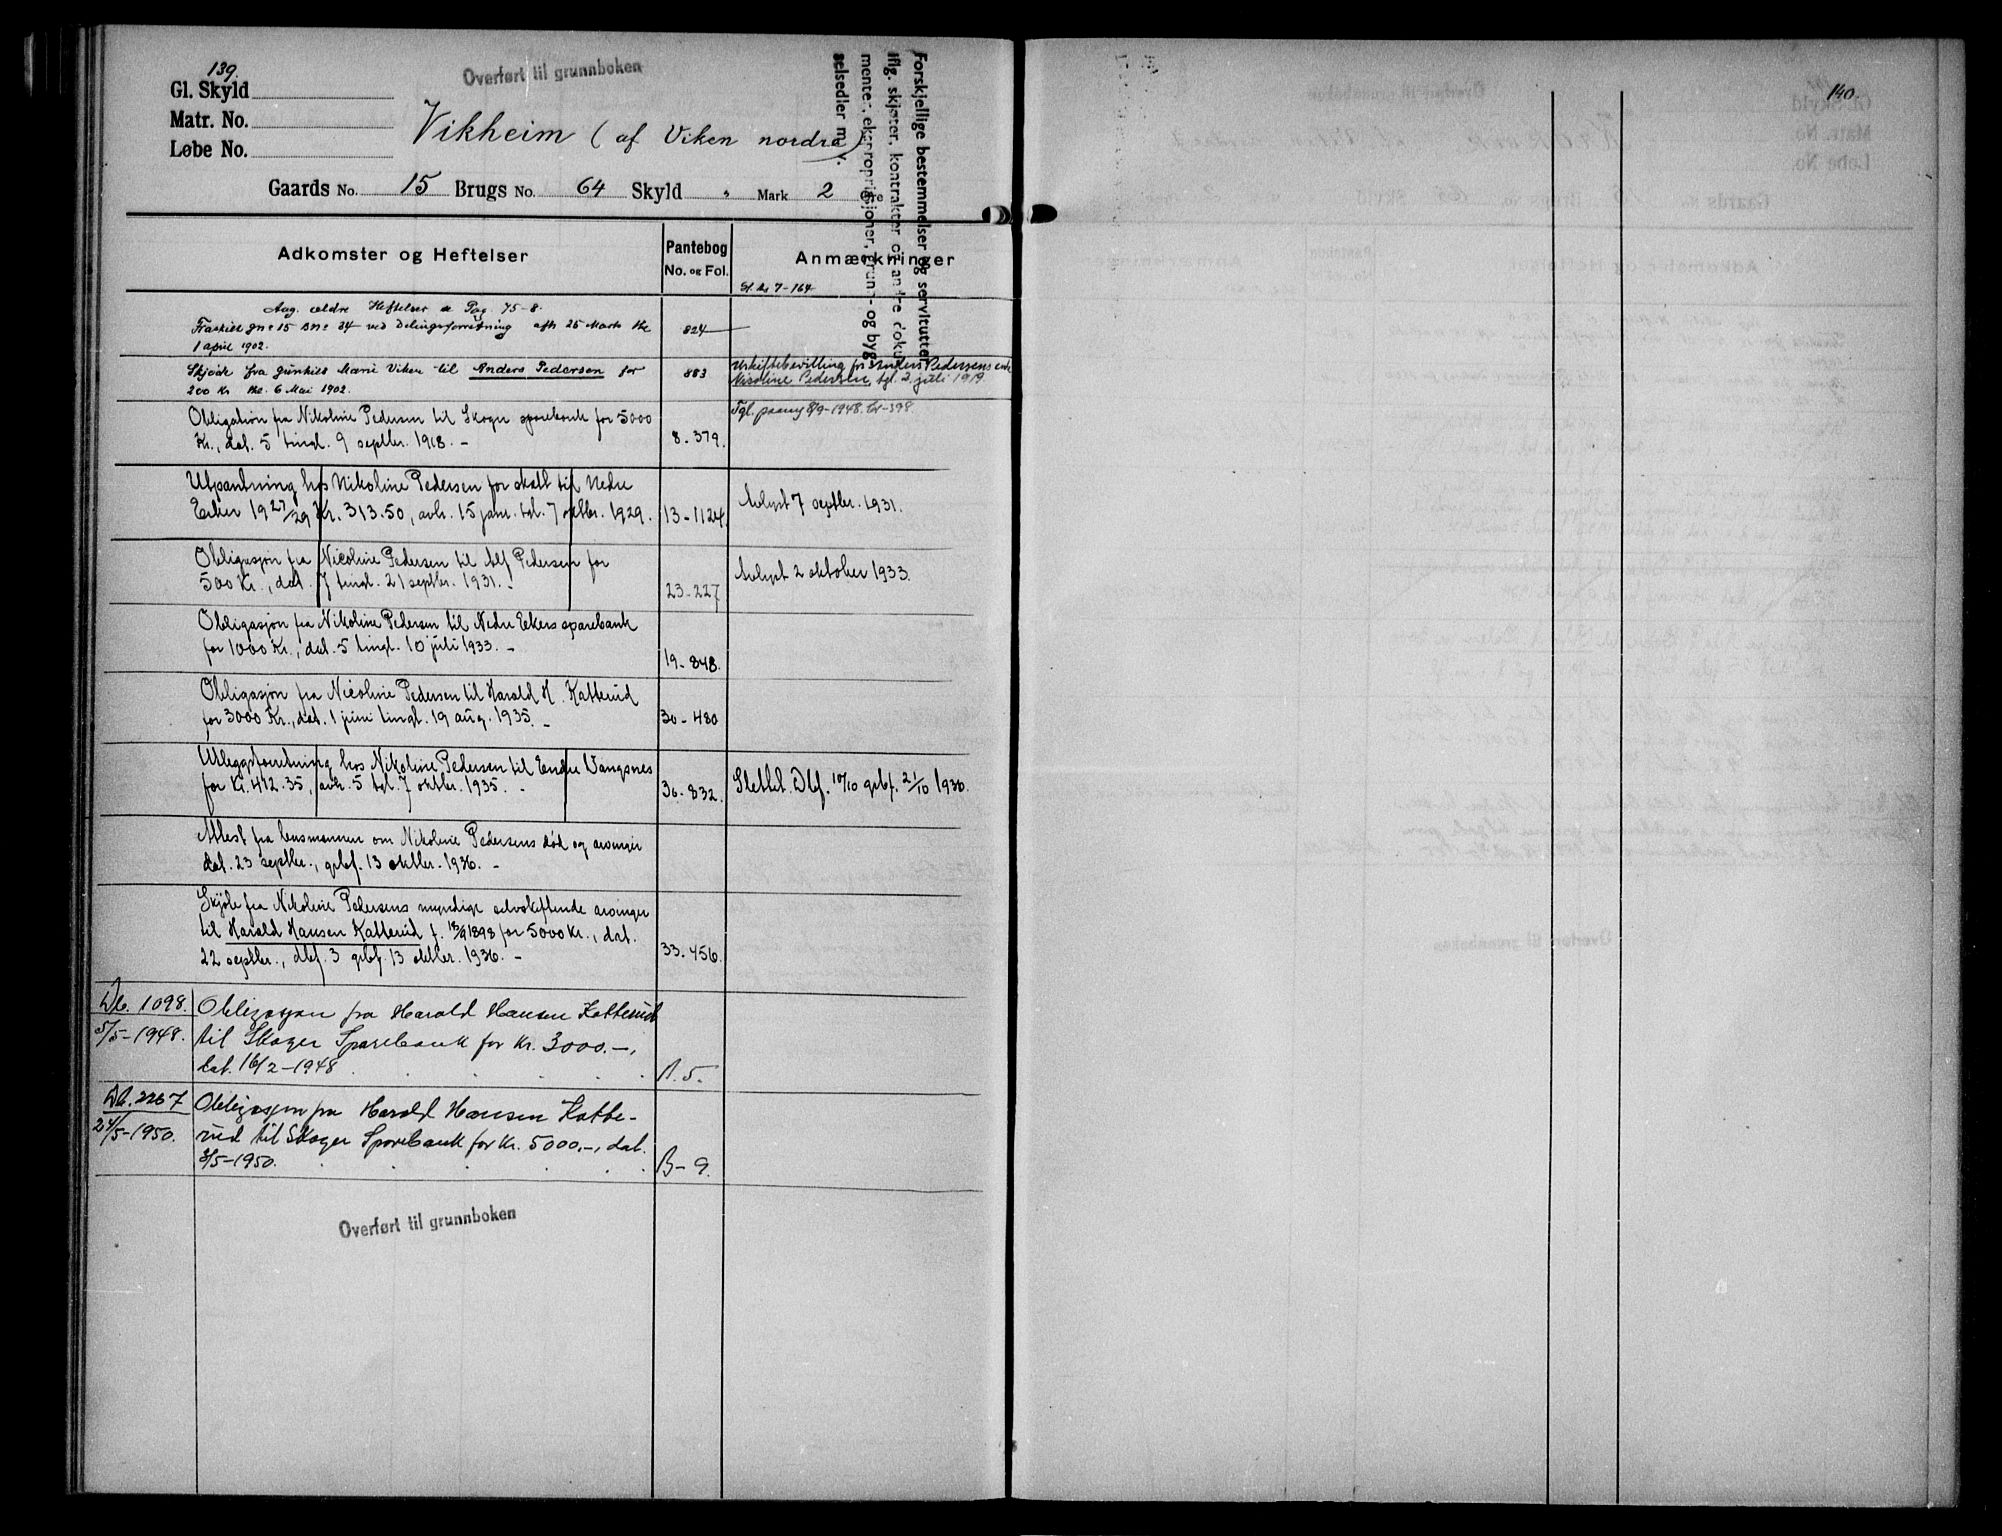 139.
Overført til grunnboken
Gl. Skyld
Matr. No.
Løbe No.
Vikheim (af Viken nordre)
Gaards No. 15 Brugs No. 64 Skyld " Mark 2 Øre
Forskjellige bestemmelser og servitutter
iflg. skjøter, kontrakter og andre doku-
menter, ekspropriasjoner, grunn- og byg-
selsedler m. v.
Adkomster og Heftelser
Pantebog
No. og Fol.
Anmærkninger
Ang. ældre Heftelser se Pag. 75-8.
Fraskilt gno 15 Bno 34 ved Delingsforretning afh 25 Marts tht
1 april 1902.
824
Skjøde fra Gunhild Marie Viken til Anders Pedersen for
200 Kr tht. 6 Mai 1902.
883
Uskiftebevilling for Anders Pedersens enke
Nicoline Pedersen, tgl. 2. juli 1919
Obligation fra Nikoline Pedersen til Skoger sparebank for 5000
Kr., dat. 5 tingl. 9 septbr. 1918. -
8-379.
Tgl. paany 8/9-1948.
Utpantning hos Nikoline Pedersen for skatt til Nedre
Eiker 1927/29 Kr. 313.50, avh. 15 janr. tgl. 7 oktbr. 1929.
13-1124.
Avlyst 7 septbr. 1931.
Obligasjon fra Nicoline Pedersen til Alf Pedersen for
500 Kr., dat. 7 tingl. 21 septbr. 1931. -
23-227
Avlyst 2 oktober 1933.
Obligasjon fra Nikoline Pedersen til Nedre Eikers sparebank
for 1000 Kr., dat. 5 tingl. 10 juli 1933. -
19-848.
Obligasjon fra Nicoline Pedersen til Harald H. Katterud
for 3000 Kr., dat. 1 juni tingl. 19 aug. 1935. -
30-480
Utleggsforretning hos Nikoline Pedersen til Endre Vangsnes
for Kr. 412.35, avh. 5 tgl. 7 oktbr. 1935. -
30-832.
Slettet. Dbf. 19/10 grbf. 21/10 1936.
Attest fra lensmannen om Nikoline Pedersens død og arvinger
dat. 23 septbr., grbf. 13 oktbr. 1936. -
Skjøte fra Nikoline Pedersens myndige selvskiftende arvinger
til Harald Hansen Katterud f. 18/9 1898 for 5000 Kr., dat.
22 septbr., dbf. 3 grbf. 13 oktbr. 1936. -
33-456.
Db. 1098.
5/5-1948.
Obligasjon fra Harald Hansen Katterud
til Skoger Sparebank for Kr. 3000.-,
dat. 16/2-1948
B. 5.
Db. 2267
24/5-1950.
Obligasjon fra Harald Hansen Katte-
rud til Skoger Sparebank for Kr. 5000.-, dat.
3/5-1950.
B-9.
Overført til grunnboken
140.